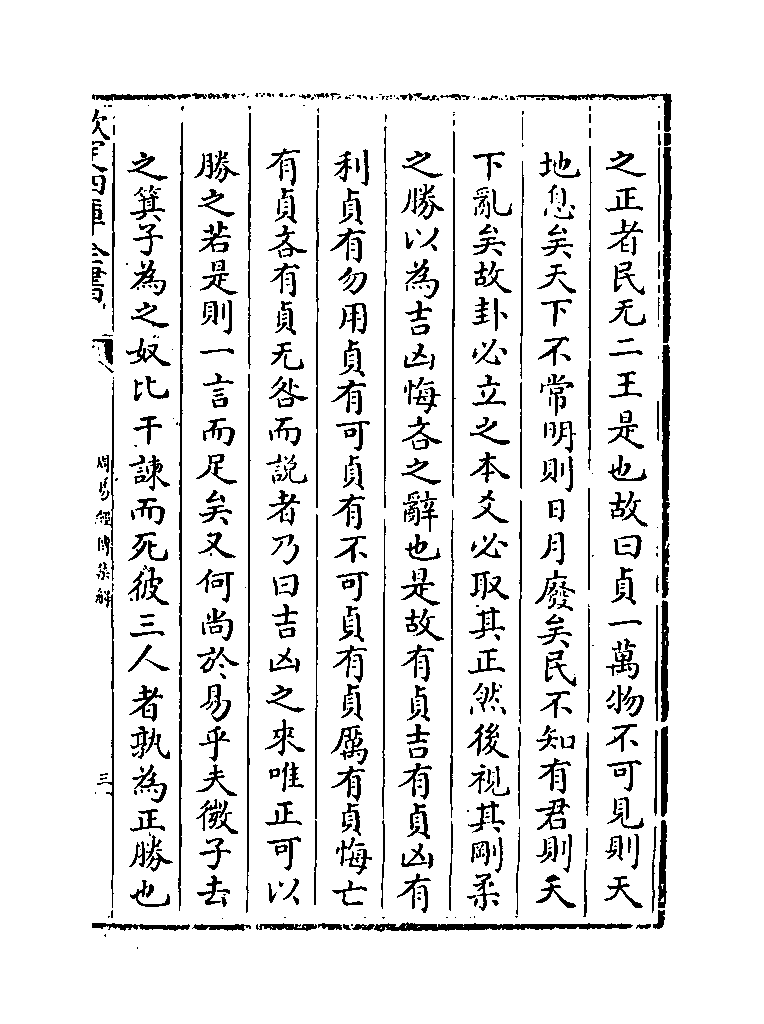 之正者民无二王是也故曰貞一萬物不可見則天
地息矣天下不常明則日月廢矣民不知有君則天
下亂矣故卦必立之本爻必取其正然後視其剛柔
之勝以為吉凶悔吝之辭也是故有貞吉有貞凶有
利貞有勿用貞有可貞有不可貞有貞厲有貞悔亡
有貞吝有貞无咎而説者乃曰吉凶之來唯正可以
勝之若是則一言而足矣又何尚於易乎夫微子去
之箕子為之奴比干諫而死彼三人者孰為正勝也
欽定四庫全書
周易經傳集解
三